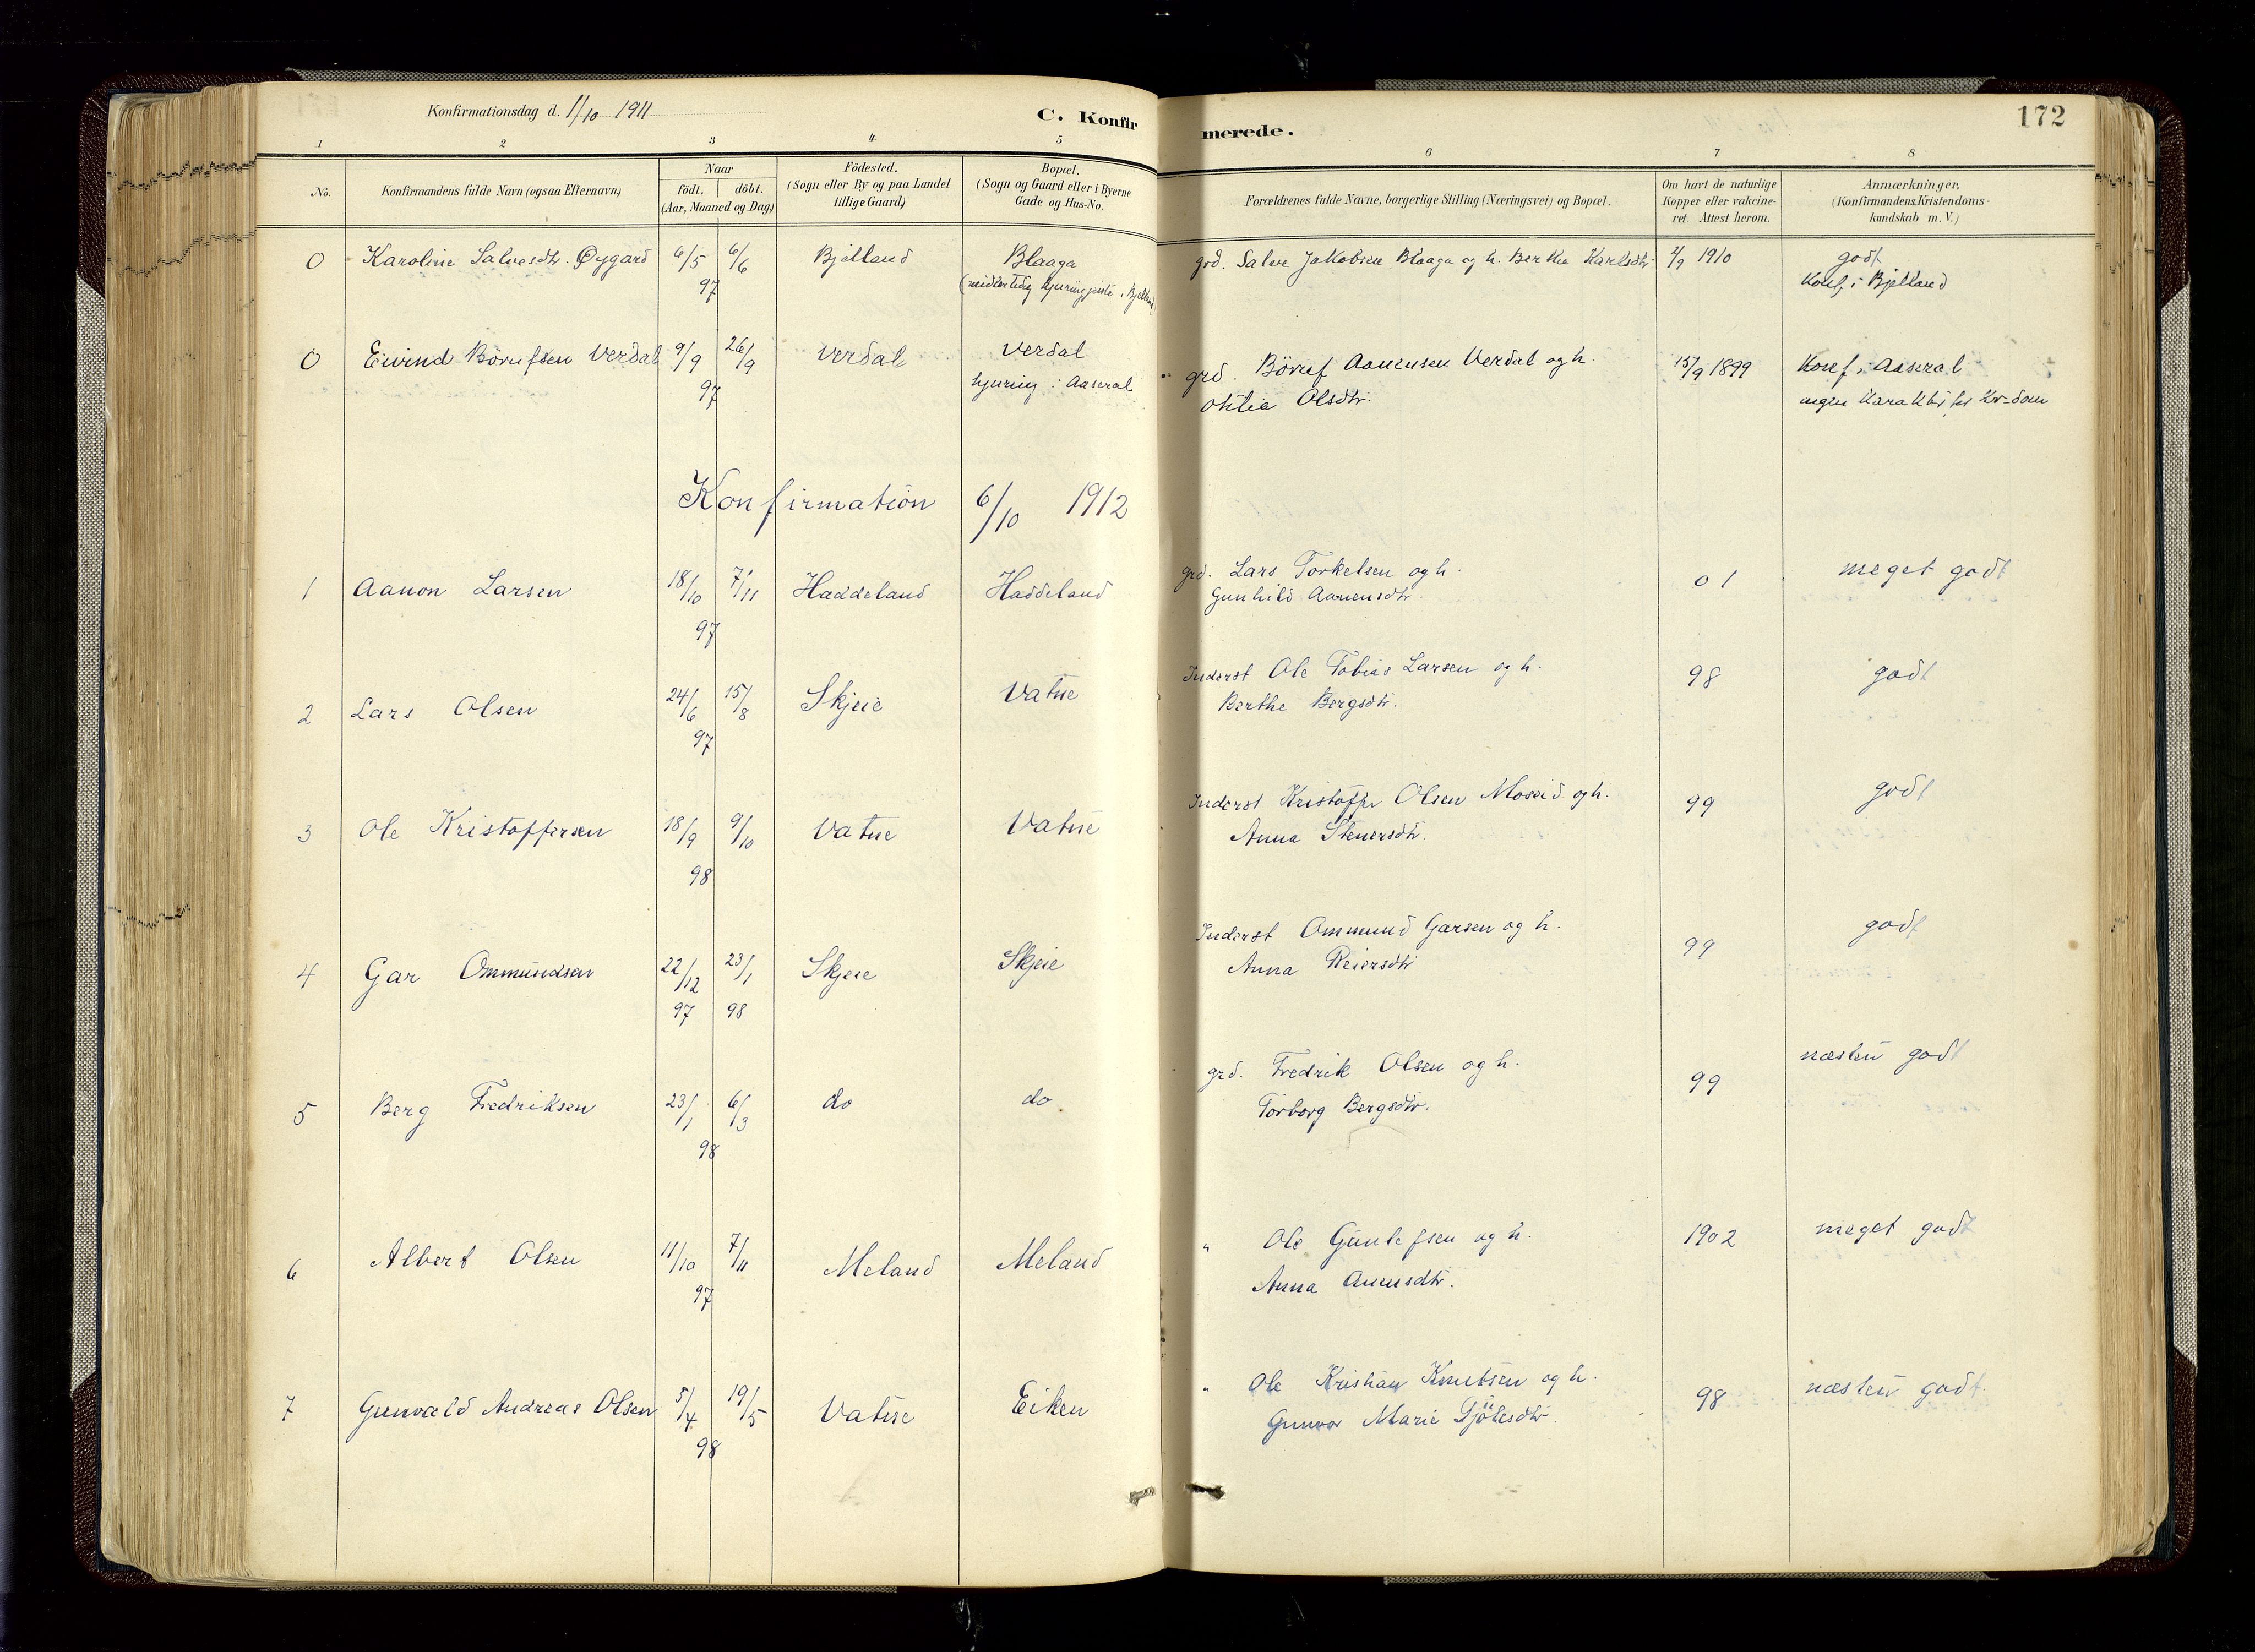 Konfirmationsdag d. 1/10 1911
C. Konfirmerede.
172
1 2 3 4 5 6 7 8
No.
Konfirmandens fulde Navn (ogsaa Efternavn)
Naar
födt. döbt.
(Aar, Maaned og Dag)
Födested.
(Sogn eller By og paa Landet
tillige Gaard)
Bopæl.
(Sogn og Gaard eller i Byerne
Gade og Hus-No.
Forældrenes fulde Navne, borgerlige Stilling (Næringsvei) og Bopæl.
Om havt de naturlige
Kopper eller vakcine-
ret. Attest herom.
Anmærkninger.
(Konfirmandens Kristendoms-
kundskab m. V.)
0 Karoline Salvesdtr. Øygard 6/5 6/6 Bjelland Blaaga grd. Salve Jakobsen Blaaga og h. Berthe Karlsdtr. 2/9 1910 godt
97 (midlertidig i Bjelland) Konf. i Bjelland
0 Eivind Börufsen Verdal 9/9 26/9 Verdal Verdal grd. Böruf Aanensen Verdal og h. 15/9 1899 Konf. i Aaseral
97 hjuring i Aaseral Otilia Olsdtr. ingen Karakter for Kr-dom
Konfirmation 6/10 1912
1 Aanon Larsen 18/10 7/11 Haddeland Haddeland grd. Lars Torkelsen og h. 01 meget godt
97 Gunhild Aanensdtr.
2 Lars Olsen 24/6 15/8 Skjeie Vatne Inderst Ole Tobias Larsen og h. 98 godt
97 Berthe Bergsdtr.
3 Ole Kristoffersen 18/9 9/10 Vatne Vatne Inderst Kristoffer Olsen Moseid og h. 99 godt
98 Anna Stenersdtr.
4 Gar Ommundsen 22/12 23/1 Skjeie Skjeie Inderst Ommund Garsen og h. 99 godt
97 98 Anna Reiersdtr
5 Berg Fredriksen 23/1 6/3 do do grd. Fredrik Olsen og h. 99 næsten godt
98 Torborg Bergsdtr.
6 Albert Olsen 11/10 7/11 Meland Meland " Ole Gunlefsen og h. 1902 meget godt
97 Anna Anensdtr.
7 Gunvald Andreas Olsen 5/4 19/5 Vatne Eiken " Ole Kristian Knutsen og h. 98 næsten godt
98 Gunvor Marie Tjötesdtr.